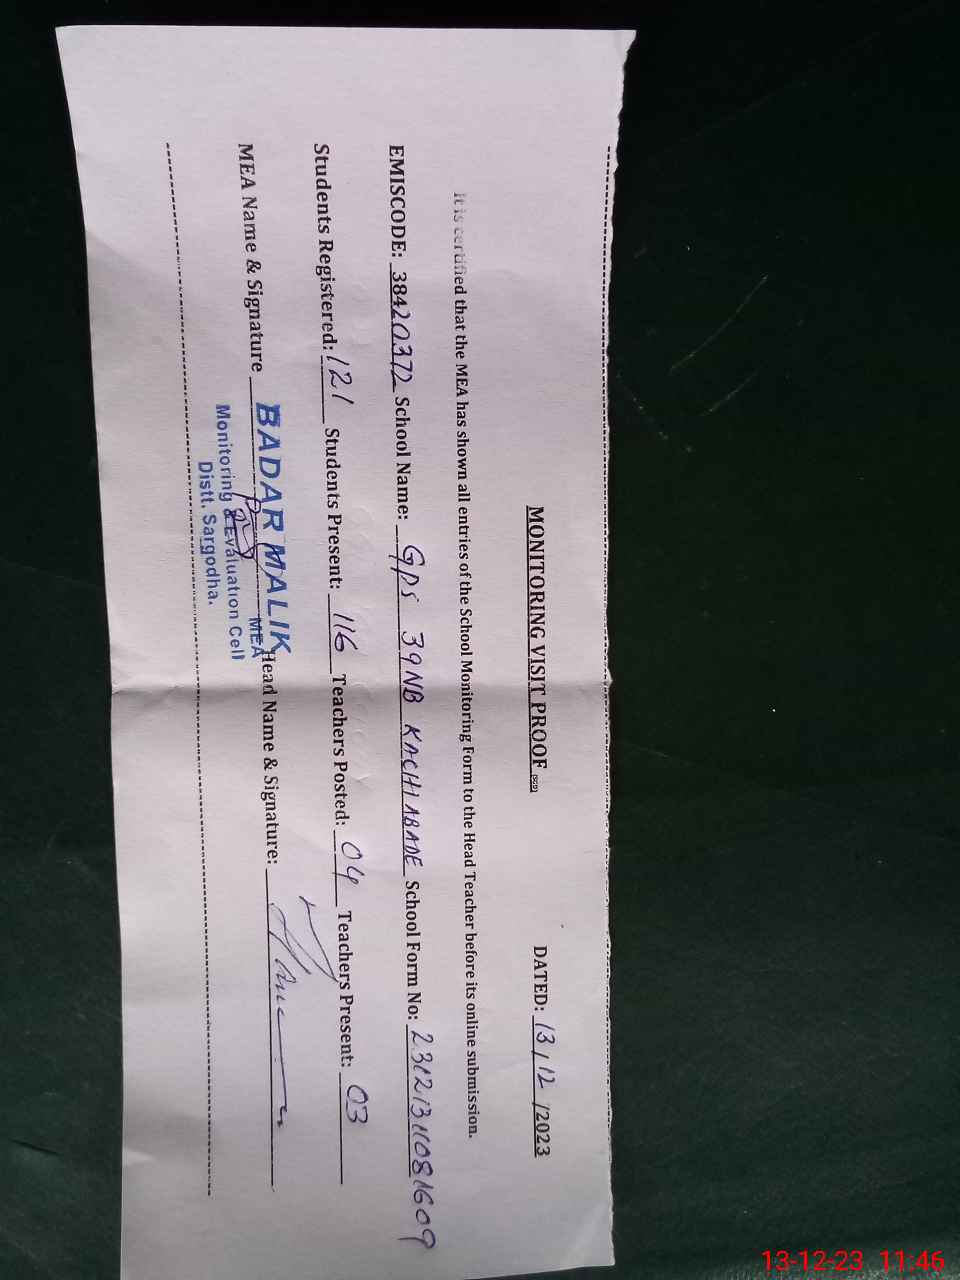 MONITORING VISIT PROOF (SGD)
DATED: 13/12/2023
It is certified that the MEA has shown all entries of the School Monitoring Form to the Head Teacher before its online submission.
EMISCODE: 38420372 School Name: GPS 39NB KACHI ABADE School Form No: 23121311081609
Students Registered: 121 Students Present: 116 Teachers Posted: 04 Teachers Present: 03
MEA Name & Signature Head Name & Signature:
BADAR MALIK
MEA
Monitoring & Evaluation Cell
Distt. Sargodha.
13-12-23 11:46